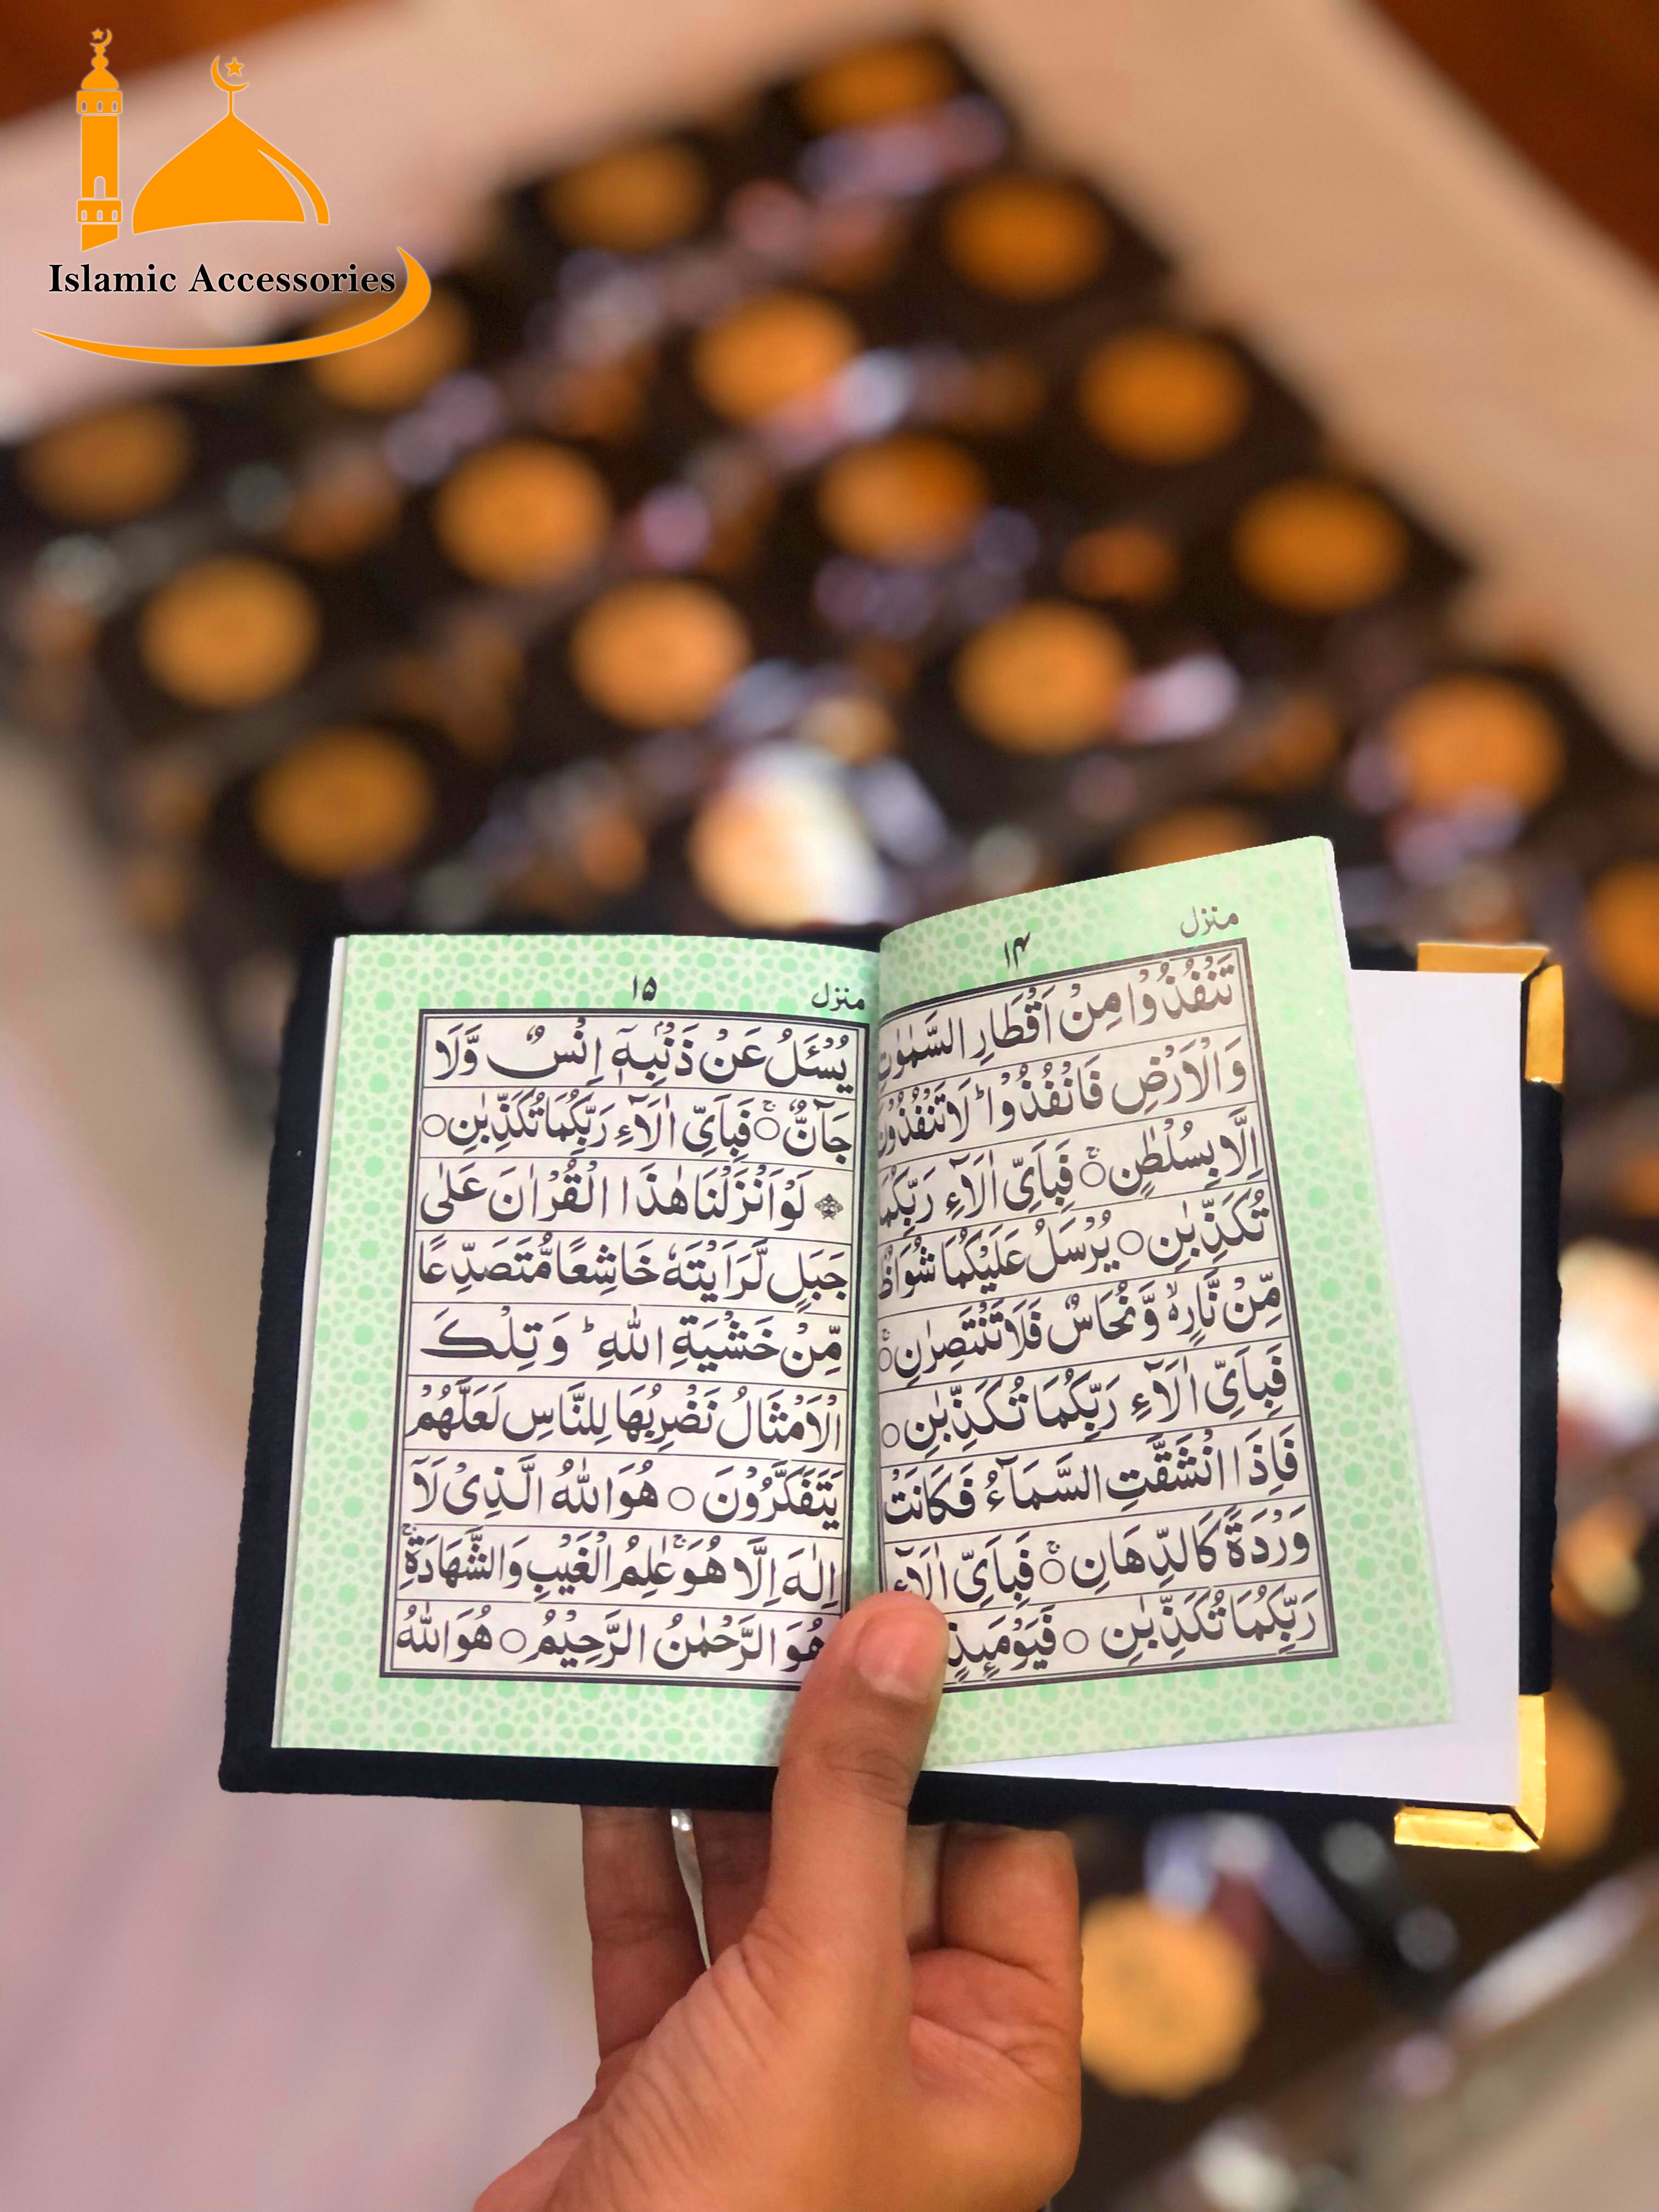 Islamic Accessories
منزل
۱۴
تَنْفُذُوْا مِنْ اَقْطَارِ السَّمٰوٰتِ
وَالْاَرْضِ فَانْفُذُوْا ؕ لَا تَنْفُذُوْنَ
اِلَّا بِسُلْطٰنٍ ۚ○ فَبِاَیِّ اٰلَآءِ رَبِّكُمَا
تُكَذِّبٰنِ ○ یُرْسَلُ عَلَیْكُمَا شُوَاظٌ
مِّنْ نَّارٍ ۙ۬ وَّ نُحَاسٌ فَلَا تَنْتَصِرٰنِ ۚ○
فَبِاَیِّ اٰلَآءِ رَبِّكُمَا تُكَذِّبٰنِ ○
فَاِذَا انْشَقَّتِ السَّمَآءُ فَكَانَتْ
وَرْدَةً كَالدِّهَانِ ۚ○ فَبِاَیِّ اٰلَآءِ
رَبِّكُمَا تُكَذِّبٰنِ ○ فَیَوْمَىِٕذٍ
منزل
۱۵
یُسْـَٔلُ عَنْ ذَنْۢبِهٖۤ اِنْسٌ وَّلَا
جَآنٌّ ۚ○ فَبِاَیِّ اٰلَآءِ رَبِّكُمَا تُكَذِّبٰنِ ○
لَوْ اَنْزَلْنَا هٰذَا الْقُرْاٰنَ عَلٰی
جَبَلٍ لَّرَاَیْتَهٗ خَاشِعًا مُّتَصَدِّعًا
مِّنْ خَشْیَةِ اللّٰهِ ؕ وَ تِلْكَ
الْاَمْثَالُ نَضْرِبُهَا لِلنَّاسِ لَعَلَّهُمْ
یَتَفَكَّرُوْنَ ○ هُوَ اللّٰهُ الَّذِیْ لَاۤ
اِلٰهَ اِلَّا هُوَ ۚ عٰلِمُ الْغَیْبِ وَالشَّهَادَةِ ۚ
هُوَ الرَّحْمٰنُ الرَّحِیْمُ ○ هُوَ اللّٰهُ